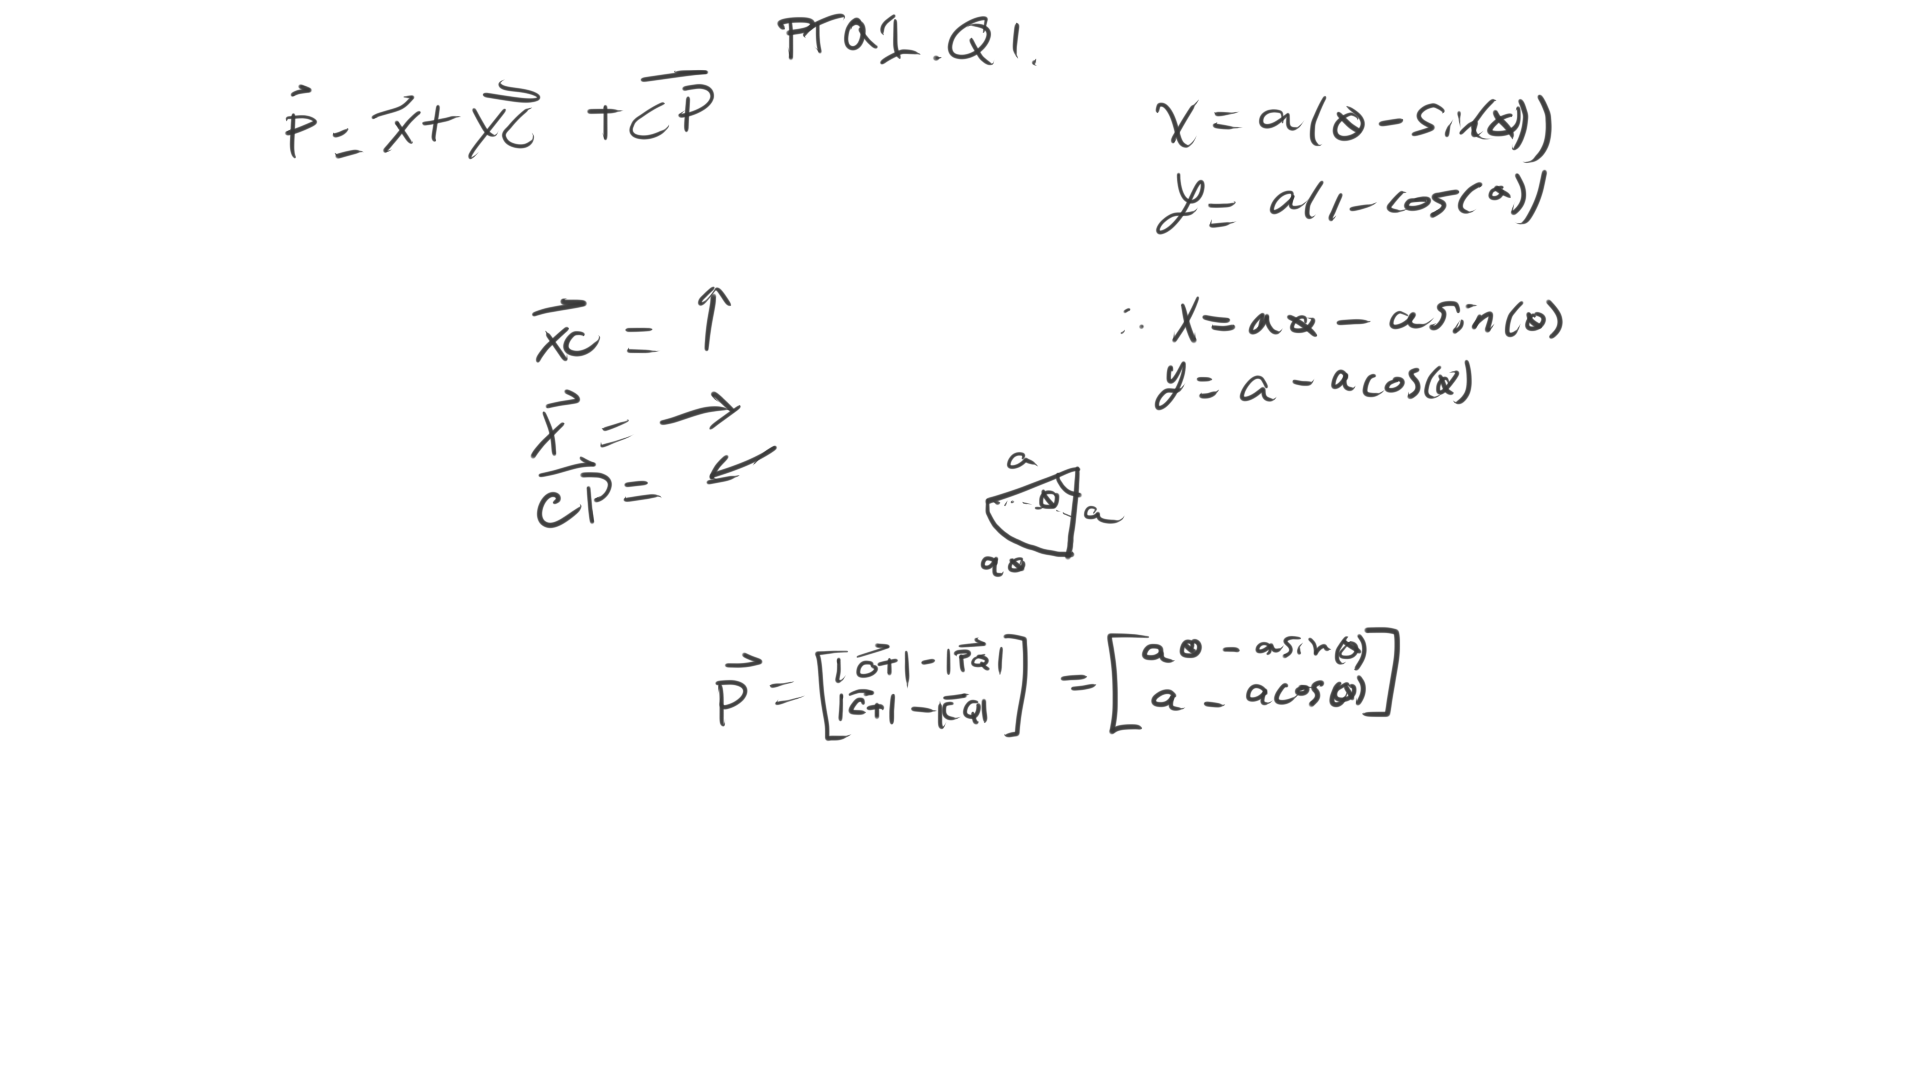 PTQ1.Q1.
P⃗ = x⃗ + XC⃗ + CP
x = a(θ - sin(θ))
y = a(1 - cos(θ))
XC⃗ = ↑
∴ x = aθ - asin(θ)
X⃗ = →
y = a - acos(θ)
CP⃗ = ↙
a
θ
a
aθ
P⃗ = [|OT⃗| - |PQ⃗|] = [aθ - asin(θ)]
[|CT⃗| - |CQ|] [a - acos(θ)]